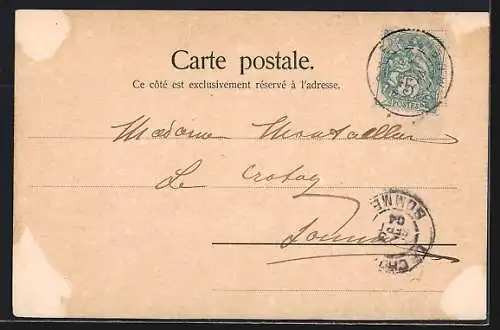 Carte postale.
Ce côté est exclusivement réservé à l'adresse.
5
POSTES
Madame
Le Crotoy
Somme
LE CRO
SEPT
04
SOMME